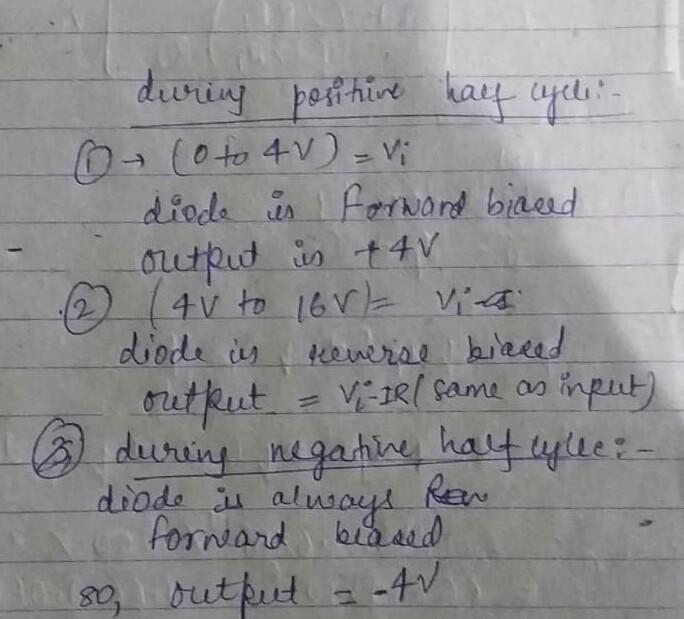 during positive half cycle:-
① → (0 to 4V) = Vi
diode is forward biased
output is +4V
② (4V to 16V) = Vi
diode is reverse biased
output = Vi-IR (same as input)
③ during negative half cycle:-
diode is always
forward biased
so, output = -4V